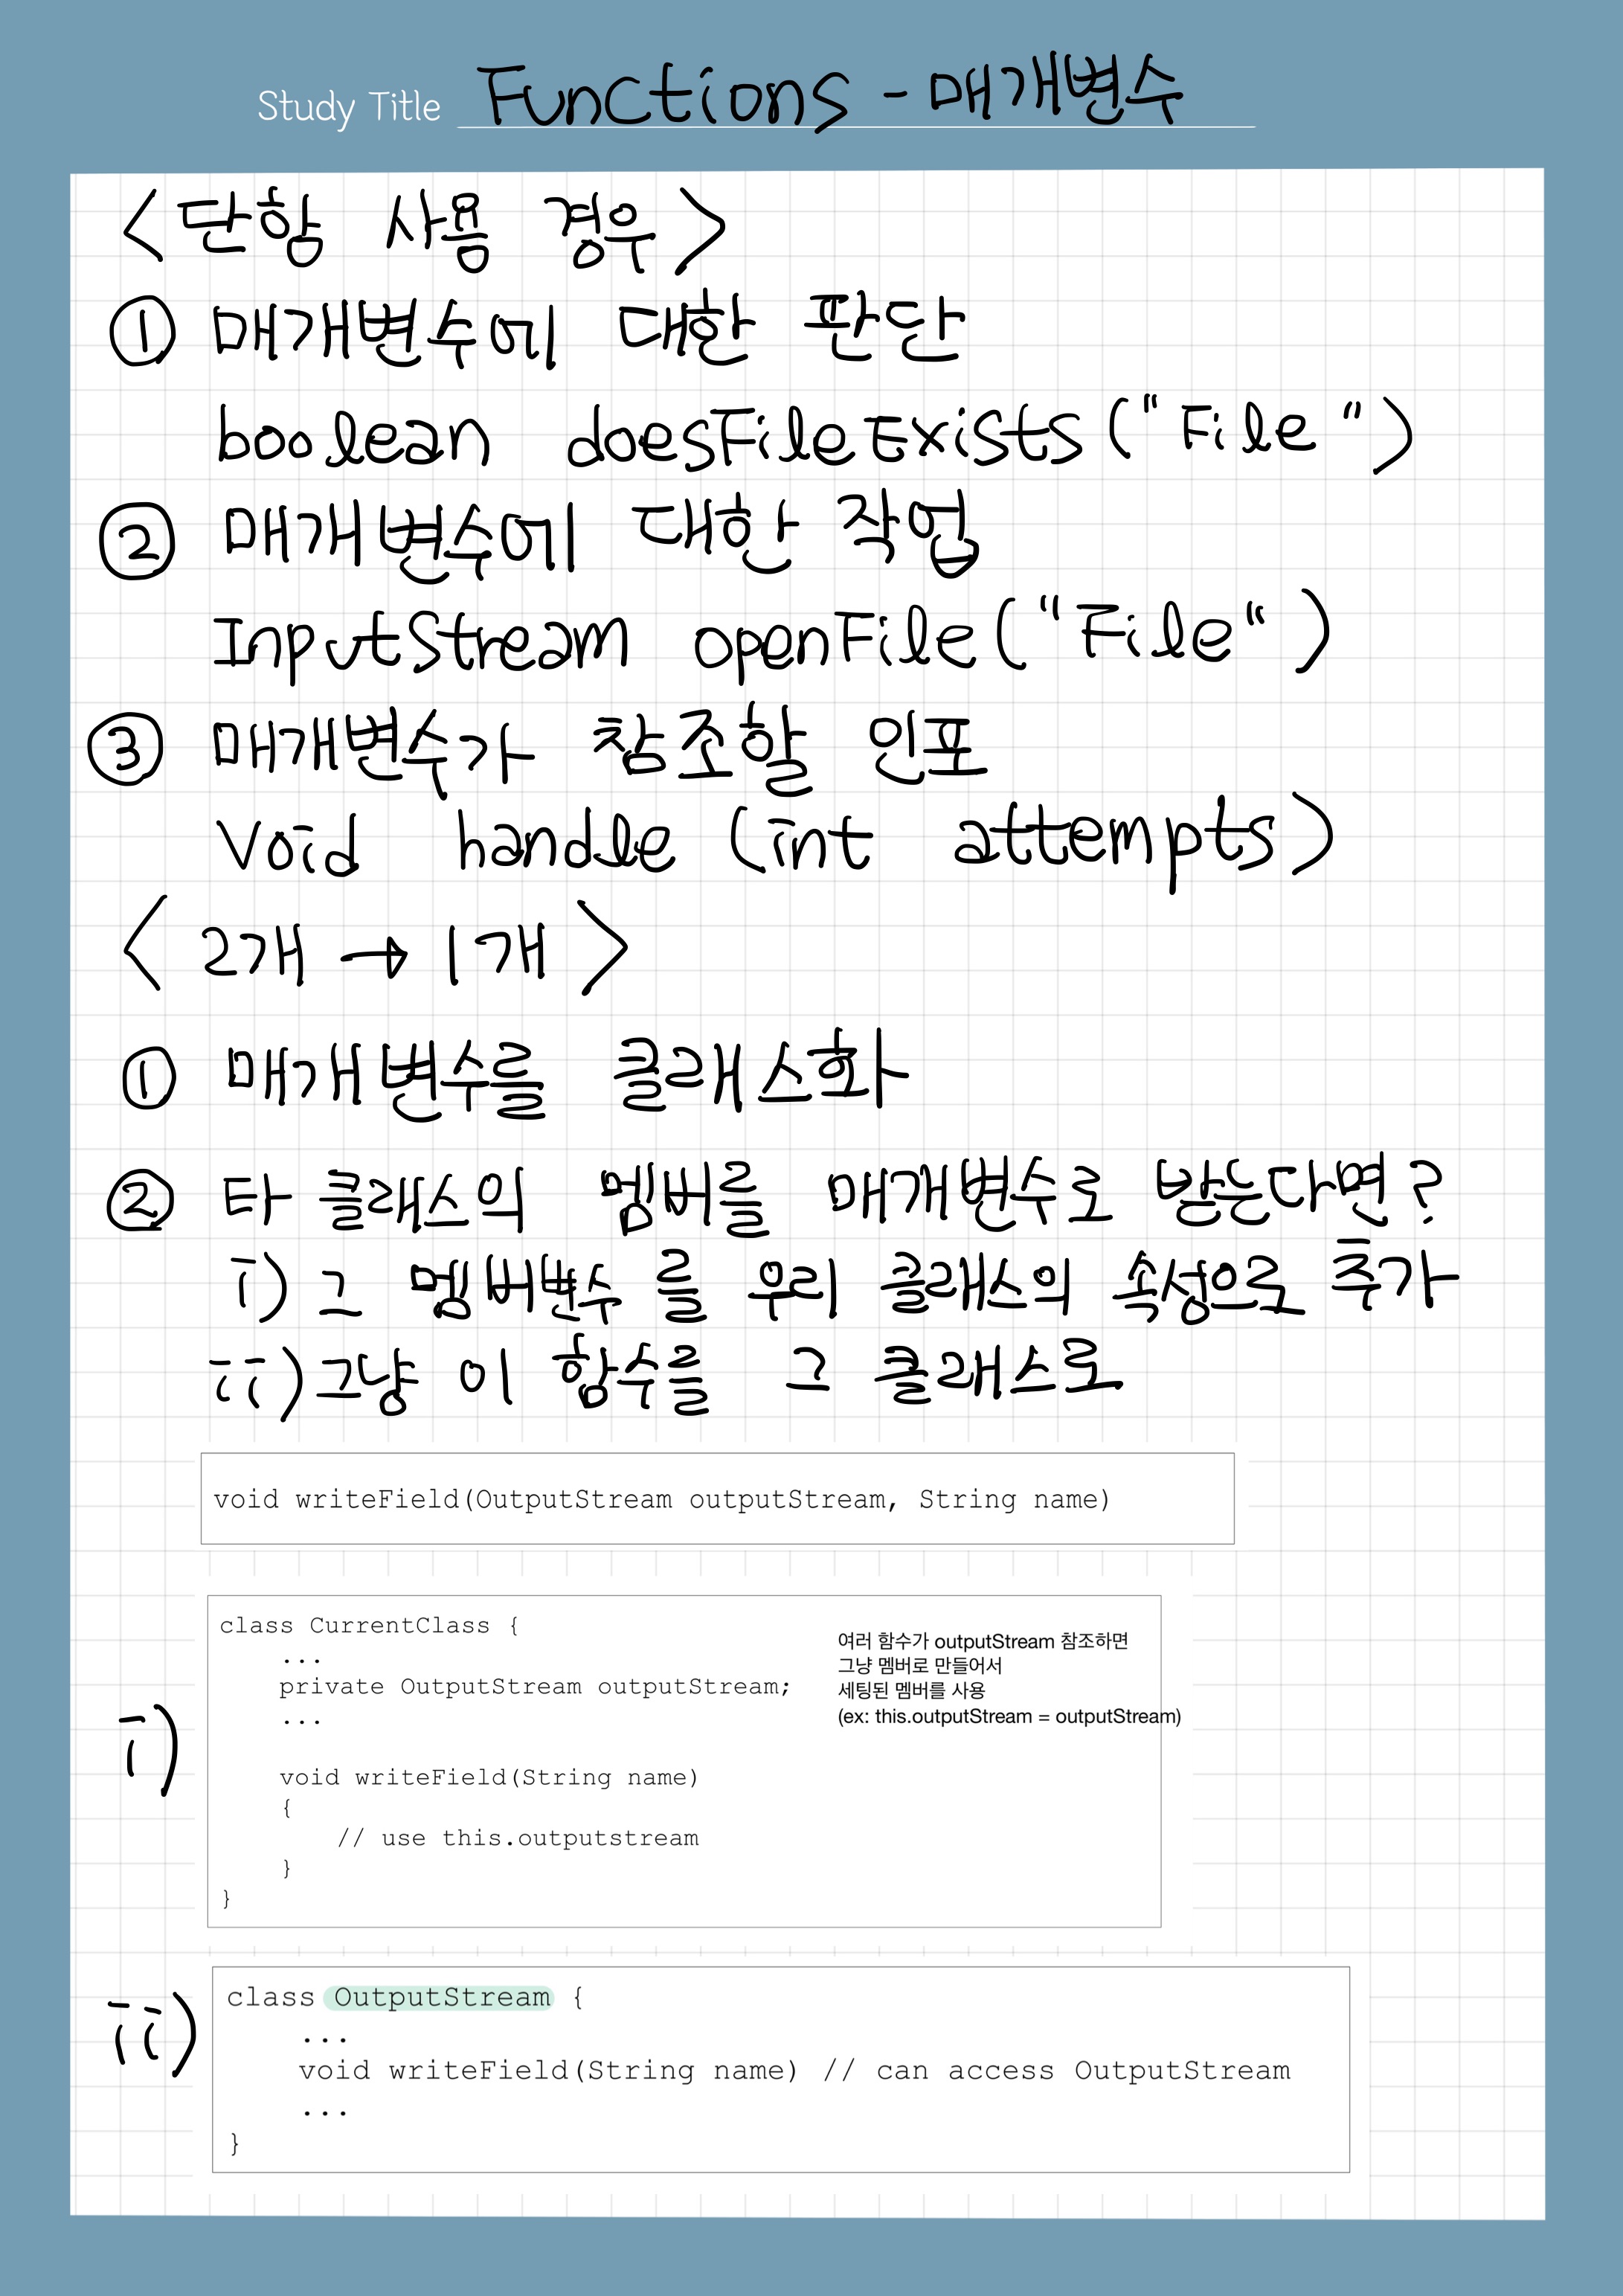 Study Title Functions - 매개변수
<단항 사용 경우>
① 매개변수에 대한 판단
boolean doesFileExists("File")
② 매개변수에 대한 작업
InputStream openFile("File")
③ 매개변수가 참조할 인포
Void handle (int attempts)
<2개 → 1개>
① 매개변수를 클래스화
② 타 클래스의 멤버를 매개변수로 받는다면?
i) 그 멤버변수를 우리 클래스의 속성으로 추가
ii) 그냥 이 함수를 그 클래스로
void writeField(OutputStream outputStream, String name)
i)
class CurrentClass {
...
private OutputStream outputStream;
...
void writeField(String name)
{
// use this.outputstream
}
}
여러 함수가 outputStream 참조하면
그냥 멤버로 만들어서
세팅된 멤버를 사용
(ex: this.outputStream = outputStream)
ii)
class OutputStream {
...
void writeField(String name) // can access OutputStream
...
}